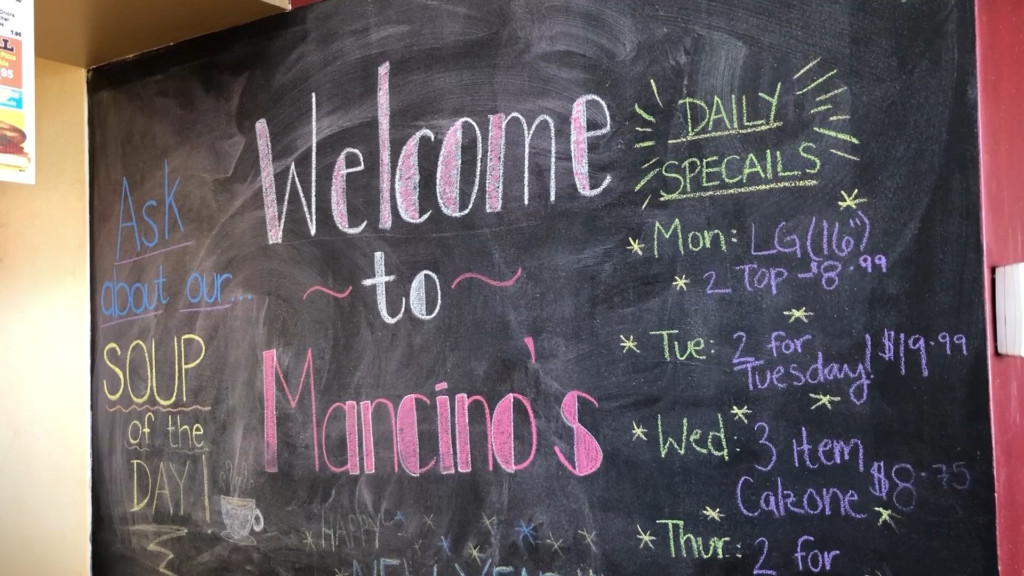 Ask
about our...
SOUP
of the
DAY!
Welcome
to
Mancino's
HAPPY
NEW YEAR
DAILY
SPECAILS
Mon: LG (16")
2 Top - $8.99
Tue: 2 for
Tuesday! $19.99
Wed: 3 item
Calzone $8.75
Thur: 2 for